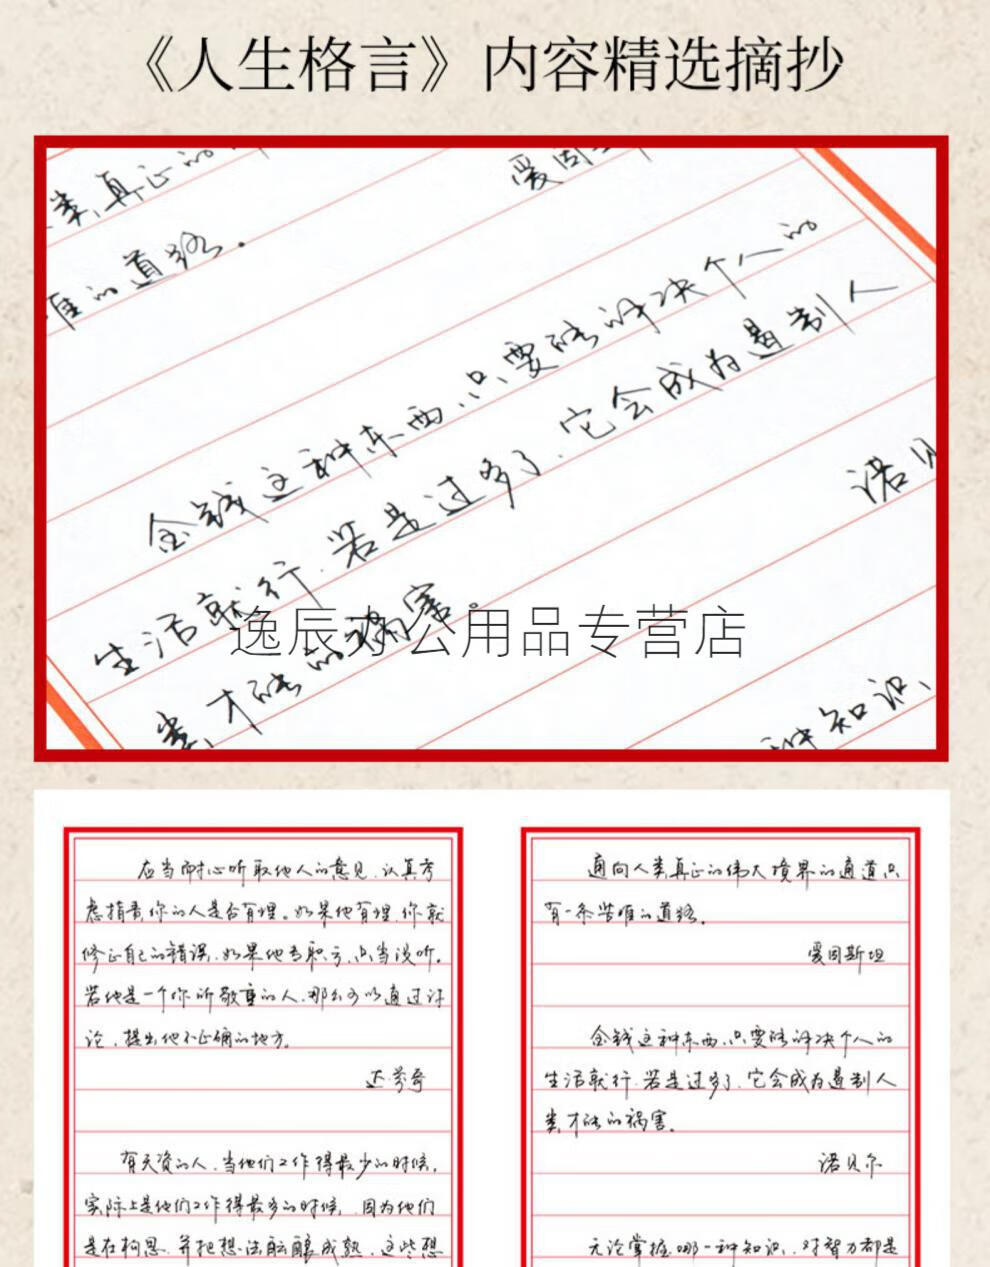 《人生格言》内容精选摘抄
类真正的
爱因
难的道路.
金钱这种东西,只要能解决个人的
生活就行,若是过多了,它会成为遏制人
类才能的祸害。
诺贝
种知识,
逸辰办公用品专营店
应当耐心听取他人的意见,认真考
虑指责你的人是否有理。如果他有理,你就
修正自己的错误,如果他
只当没听。
若他是一个你所敬重的人,那么可以通过讨
论,提出他不正确的地方。
达·芬奇
有天资的人,当他们工作得最少的时候,
实际上是他们工作得最多的时候,因为他们
是在构思,并把想法酝酿成熟,这些想
通向人类真正的伟大境界的通道只
有一条苦难的道路。
爱因斯坦
金钱这种东西,只要能解决个人的
生活就行,若是过多了,它会成为遏制人
类才能的祸害。
诺贝尔
无论掌握哪一种知识,对智力都是